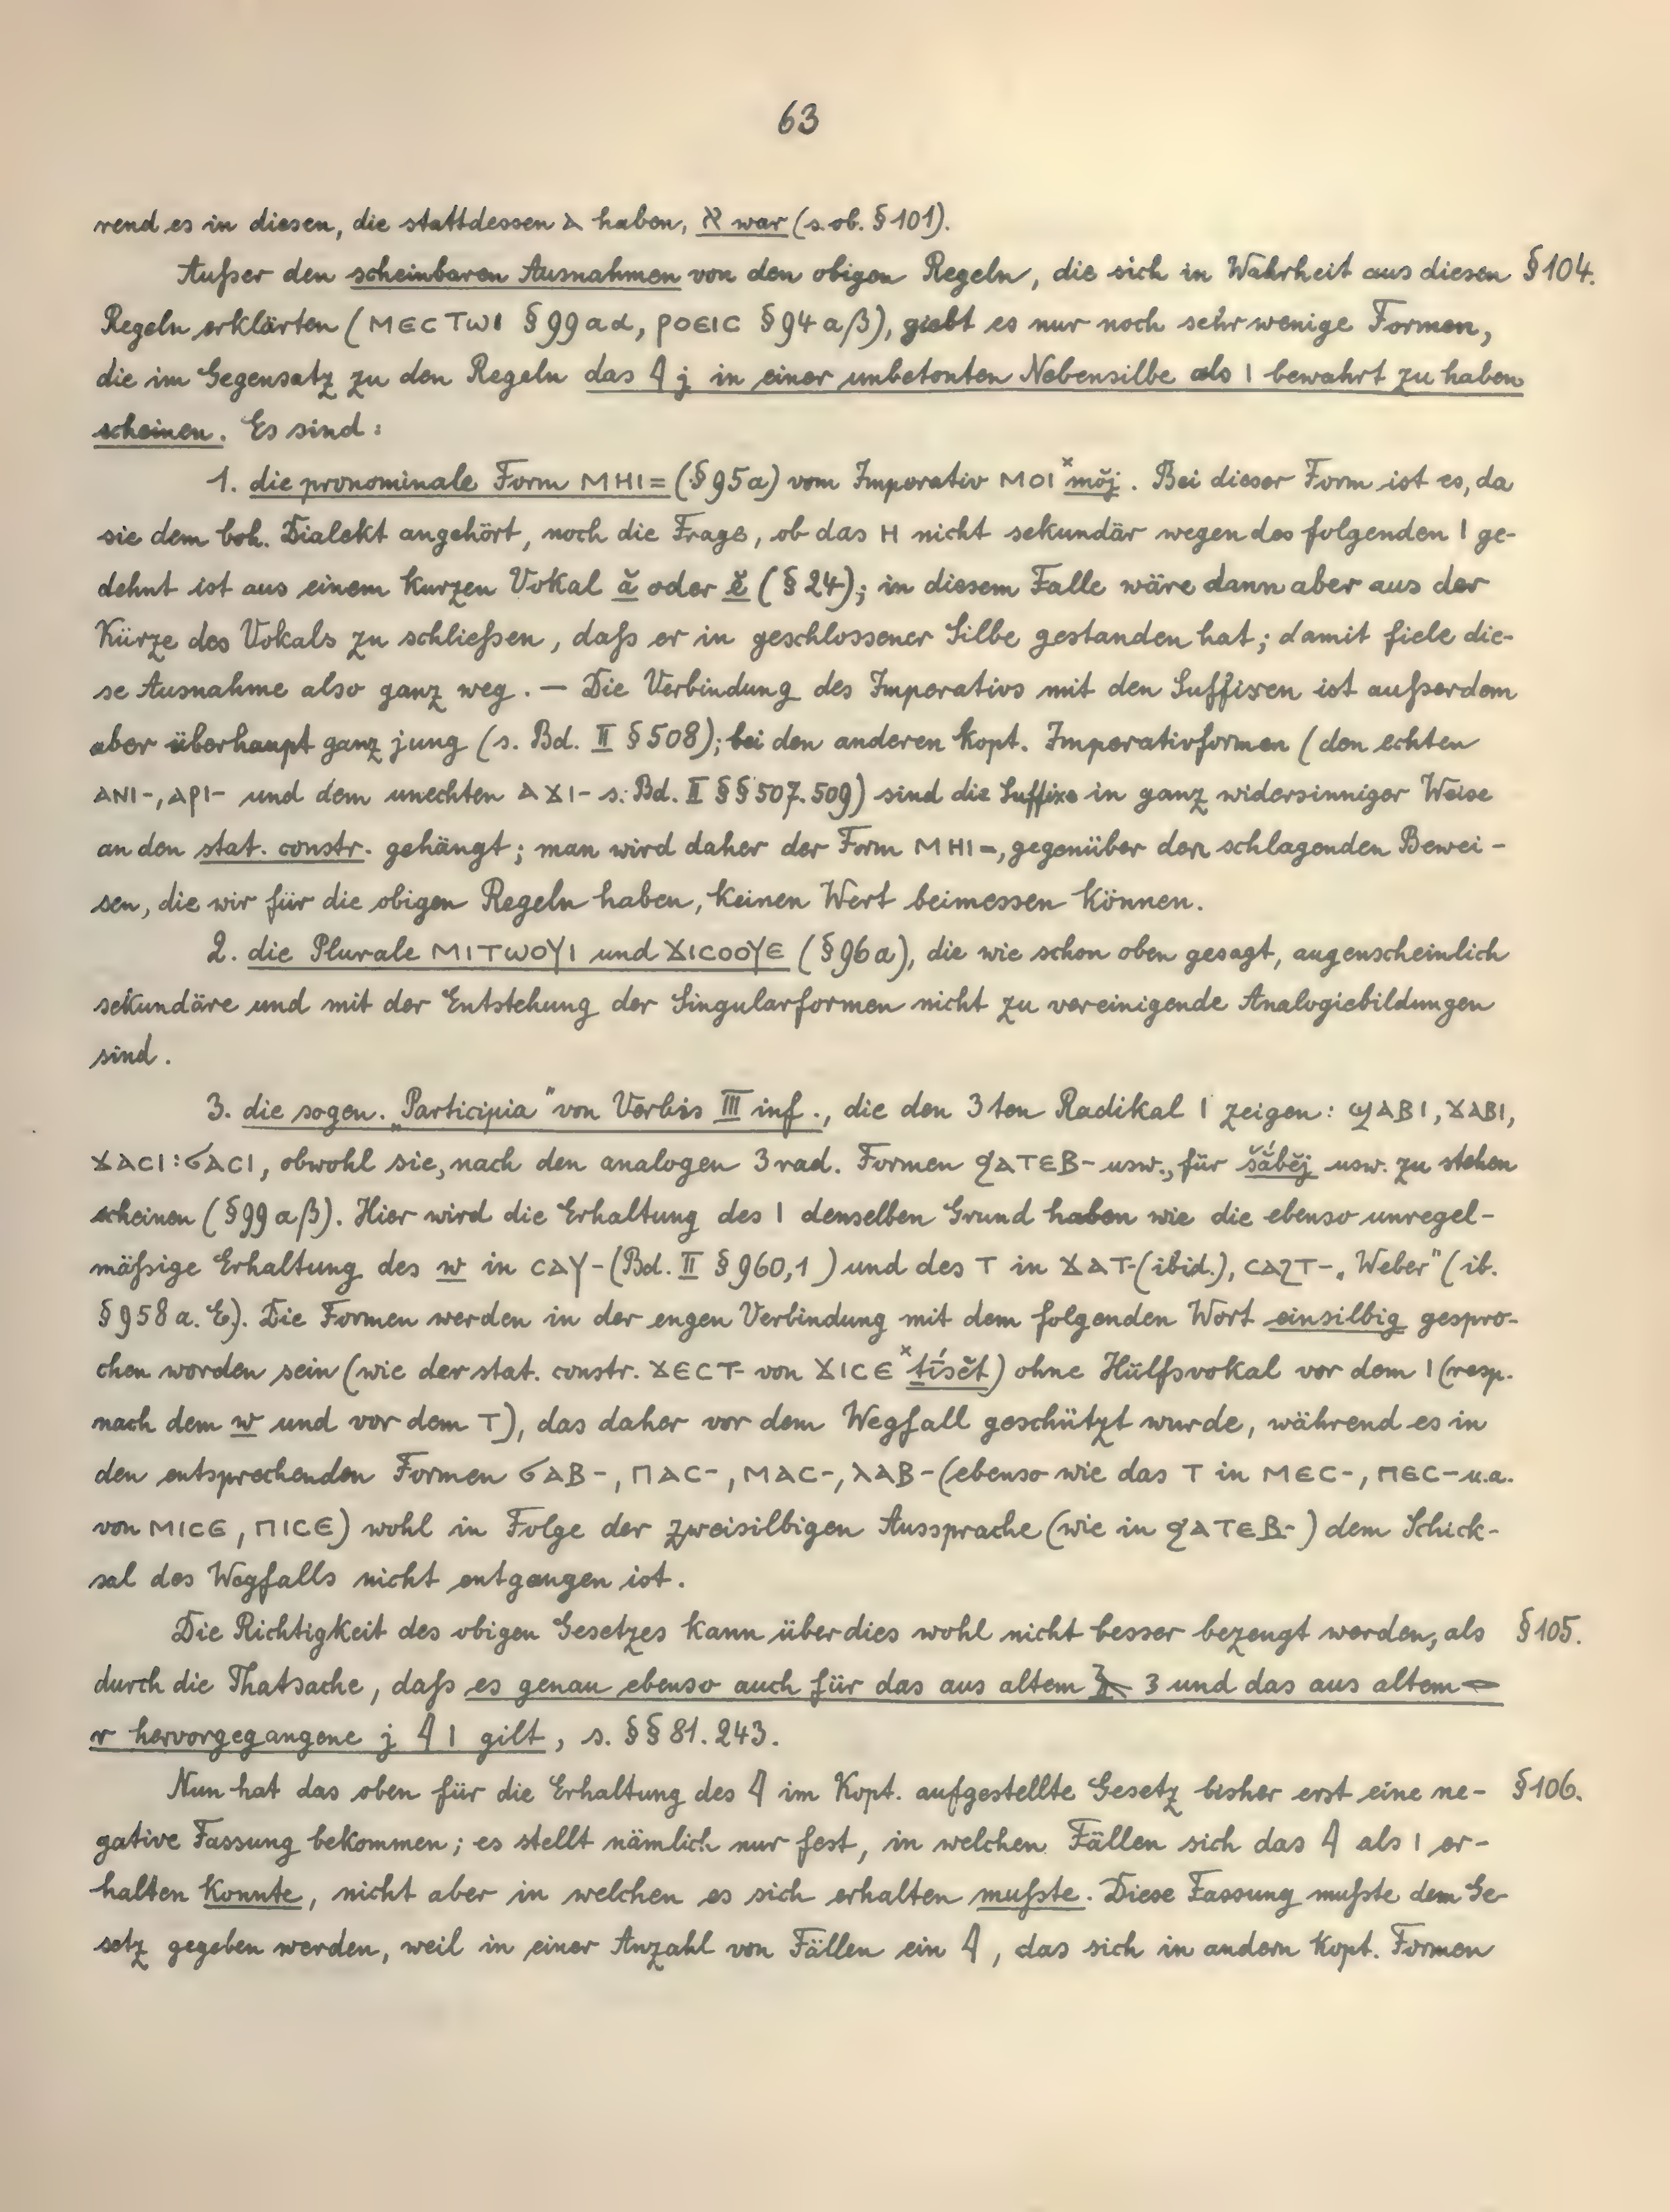 63
rend es in diesen, die stattdessen ⲁ haben, א war (s. ob. § 101).
Außer den scheinbaren Ausnahmen von den obigen Regeln, die sich in Wahrheit aus diesen § 104.
Regeln erklärten (ⲙⲉⲥⲧⲱⲓ § 99 aα, ⲣⲟⲉⲓⲥ § 94 aβ), giebt es nur noch sehr wenige Formen,
die im Gegensatz zu den Regeln das 𓇋 j in einer unbetonten Nebensilbe als ⲓ bewahrt zu haben
scheinen. Es sind:
1. die pronominale Form ⲙⲏⲓ= (§ 95a) vom Imperativ ⲙⲟⲓ ˣmŏj. Bei dieser Form ist es, da
sie dem boh. Dialekt angehört, noch die Frage, ob das ⲏ nicht sekundär wegen des folgenden ⲓ ge-
dehnt ist aus einem kurzen Vokal ă oder ĕ (§ 24); in diesem Falle wäre dann aber aus der
Kürze des Vokals zu schließen, daß er in geschlossener Silbe gestanden hat; damit fiele die-
se Ausnahme also ganz weg. — Die Verbindung des Imperativs mit den Suffixen ist außerdem
aber überhaupt ganz jung (s. Bd. II § 508); bei den anderen kopt. Imperativformen (den echten
ⲁⲛⲓ-, ⲁⲣⲓ- und dem unechten ⲁϫⲓ- s. Bd. II §§ 507. 509) sind die Suffixe in ganz widersinniger Weise
an den stat. constr. gehängt; man wird daher der Form ⲙⲏⲓ=, gegenüber den schlagenden Bewei-
sen, die wir für die obigen Regeln haben, keinen Wert beimessen können.
2. die Plurale ⲙⲓⲧⲱⲟⲩⲓ und ϫⲓⲥⲟⲟⲩⲉ (§ 96a), die wie schon oben gesagt, augenscheinlich
sekundäre und mit der Entstehung der Singularformen nicht zu vereinigende Analogiebildungen
sind.
3. die sogen. „Participia" von Verbis III inf., die den 3ten Radikal ⲓ zeigen: ϣⲁⲃⲓ, ϫⲁⲃⲓ,
ϫⲁⲥⲓ : ϭⲁⲥⲓ, obwohl sie, nach den analogen 3rad. Formen ϥⲁⲧⲉⲃ- usw., für šắbĕj usw. zu stehen
scheinen (§ 99 aβ). Hier wird die Erhaltung des ⲓ denselben Grund haben wie die ebenso unregel-
mäßige Erhaltung des w in ⲥⲁⲩ- (Bd. II § 960,1) und des ⲧ in ϫⲁⲧ- (ibid.), ⲥⲁϩⲧ- „Weber" (ib.
§ 958 a. E.). Die Formen werden in der engen Verbindung mit dem folgenden Wort einsilbig gespro-
chen worden sein (wie der stat. constr. ϫⲉⲥⲧ- von ϫⲓⲥⲉ ˣtísĕt) ohne Hülfsvokal vor dem ⲓ (resp.
nach dem w und vor dem ⲧ), das daher vor dem Wegfall geschützt wurde, während es in
den entsprechenden Formen ϭⲁⲃ-, ⲡⲁⲥ-, ⲙⲁⲥ-, ⲗⲁⲃ- (ebenso wie das ⲧ in ⲙⲉⲥ-, ⲡⲉⲥ- u.a.
von ⲙⲓⲥⲉ, ⲡⲓⲥⲉ) wohl in Folge der zweisilbigen Aussprache (wie in ϥⲁⲧⲉⲃ-) dem Schick-
sal des Wegfalls nicht entgangen ist.
Die Richtigkeit des obigen Gesetzes kann überdies wohl nicht besser bezeugt werden, als § 105.
durch die Thatsache, daß es genau ebenso auch für das aus altem 𓄿 ꜣ und das aus altem 𓂋
r hervorgegangene j 𓇋 ⲓ gilt, s. §§ 81. 243.
Nun hat das oben für die Erhaltung des 𓇋 im Kopt. aufgestellte Gesetz bisher erst eine ne- § 106.
gative Fassung bekommen; es stellt nämlich nur fest, in welchen Fällen sich das 𓇋 als ⲓ er-
halten konnte, nicht aber in welchen es sich erhalten mußte. Diese Fassung mußte dem Ge-
setz gegeben werden, weil in einer Anzahl von Fällen ein 𓇋, das sich in andern kopt. Formen